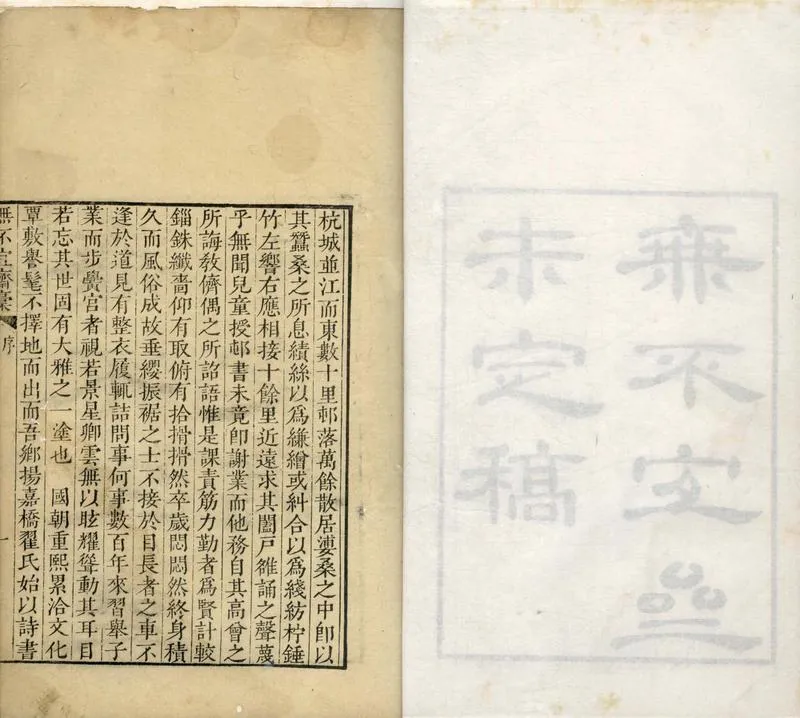 無不宜亝
未定稿
杭城並江而東數十里邨落萬餘散居桑之中卽以
其蠶桑之所息績絲以爲縑繒或糾合以爲綫紡柠錘
竹左響右應相接十餘里近遠求其闔戶雒誦之聲蔑
乎無聞兒童授邨書未竟卽謝業而他務自其高曾之
所誨教儕偶之所詔語惟是課責筋力勤者爲賢計較
錙銖纖嗇仰有取俯有拾搰搰然卒歲悶悶然終身積
久而風俗成故垂纓振裾之士不接於目長者之車不
逢於道見有整衣履輒詰問事何事數百年來習舉子
業而步黌宮者視若景星卿雲無以眩耀聳動其耳目
若忘其世固有大雅之一塗也　國朝重熙累洽文化
覃敷譽髦不擇地而出而吾鄉揚嘉橋翟氏始以詩書
無不宜齋稾 序 一